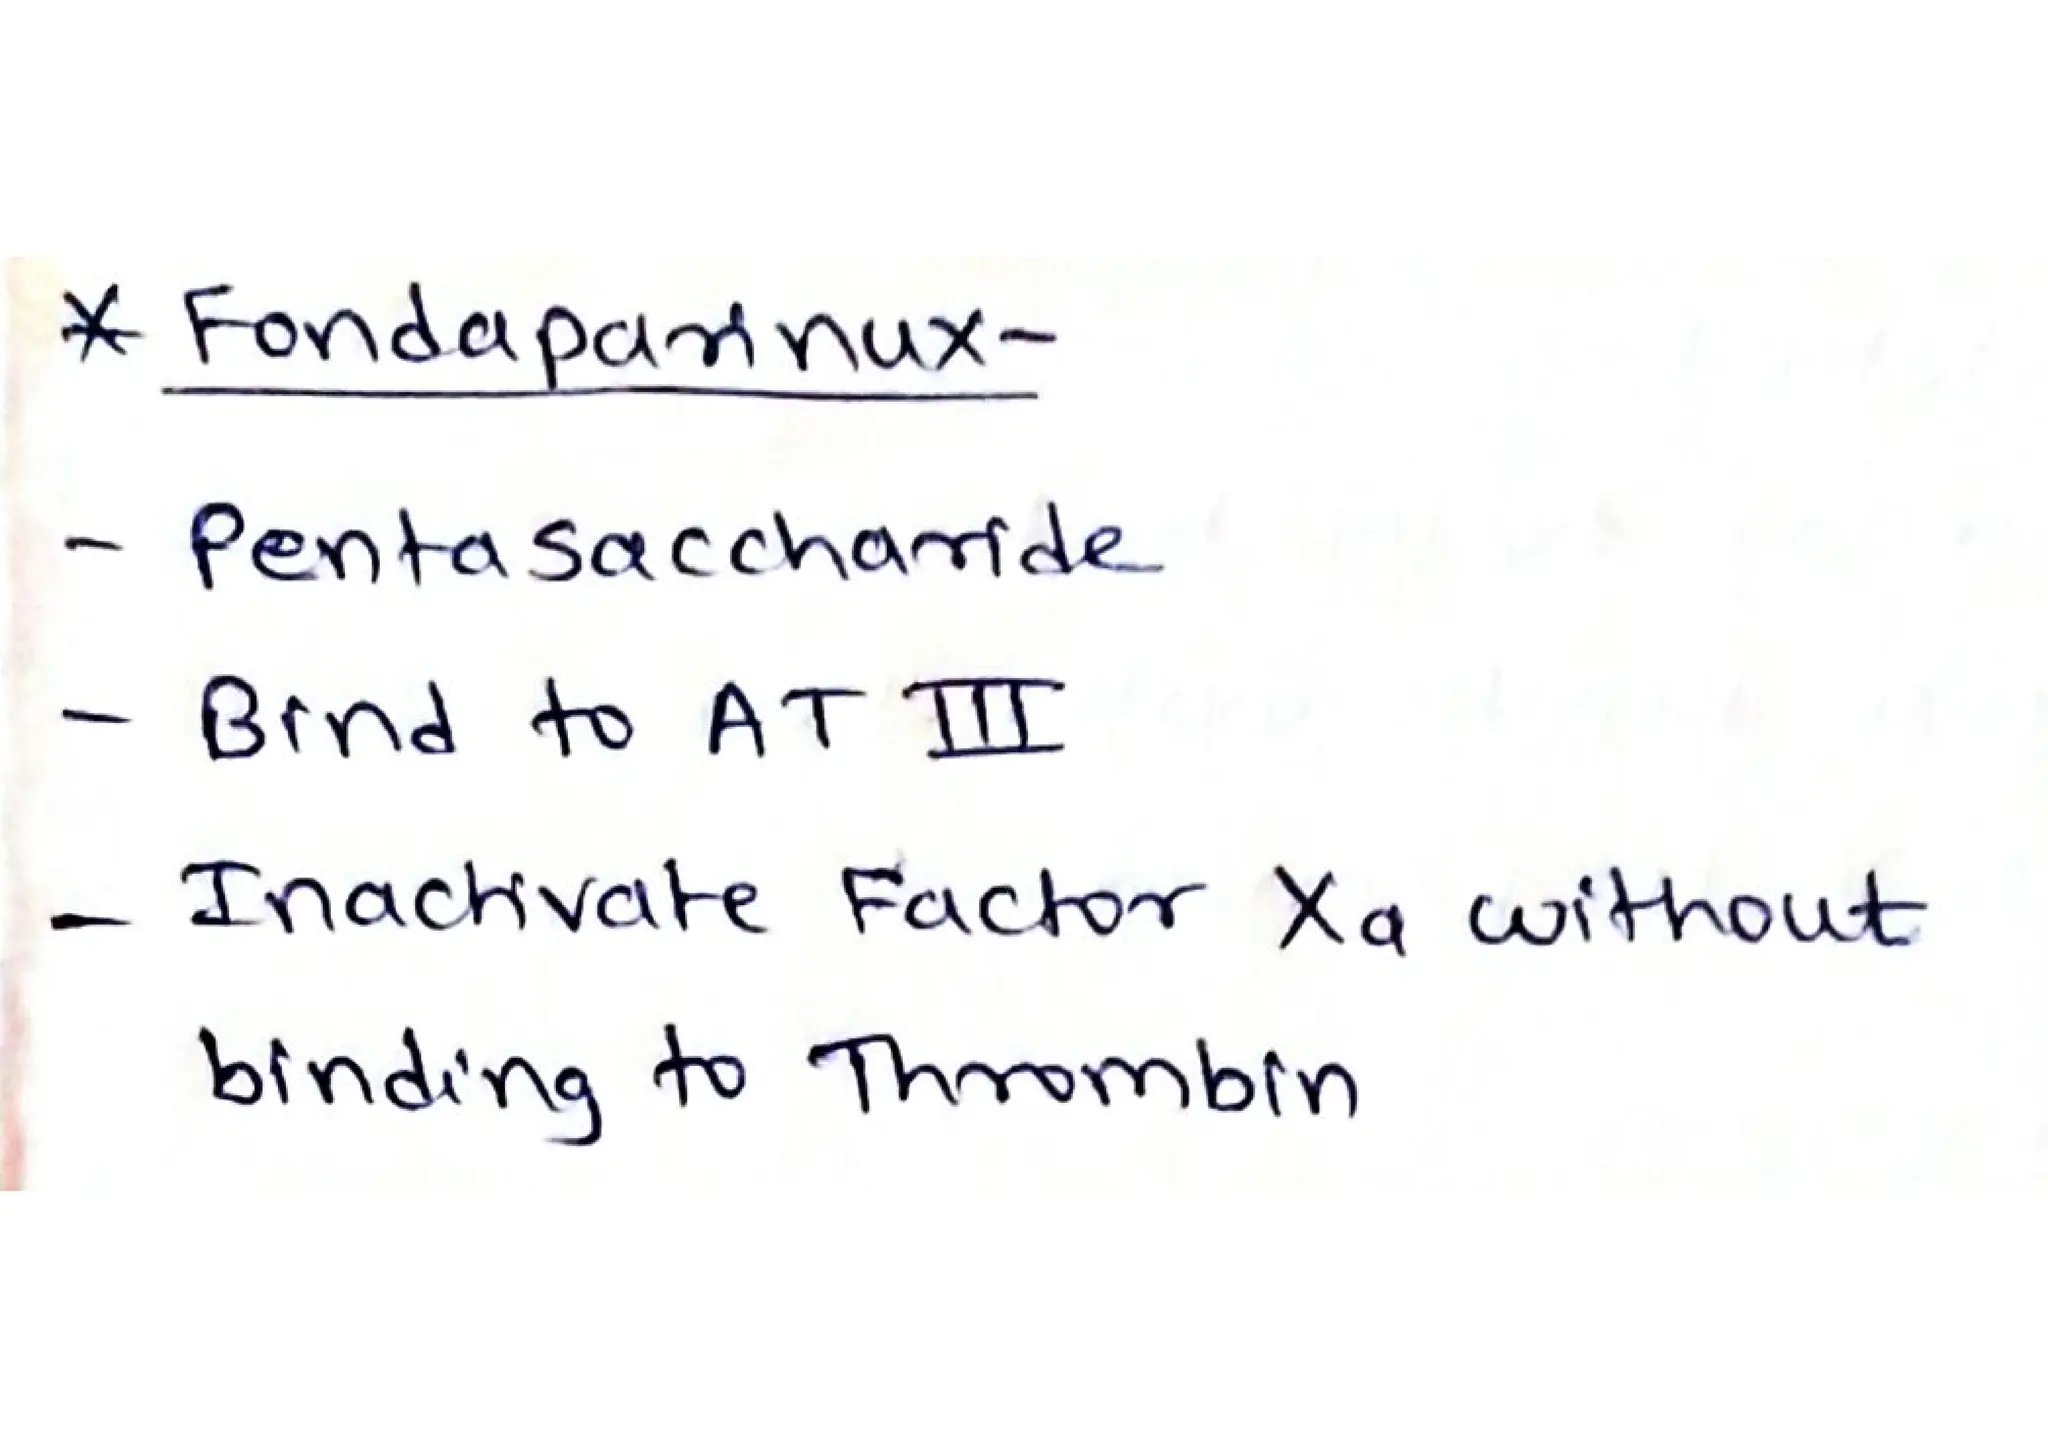 * Fondaparinux-
- Pentasaccharide
- Bind to AT III
- Inactivate Factor Xa without
binding to Thrombin